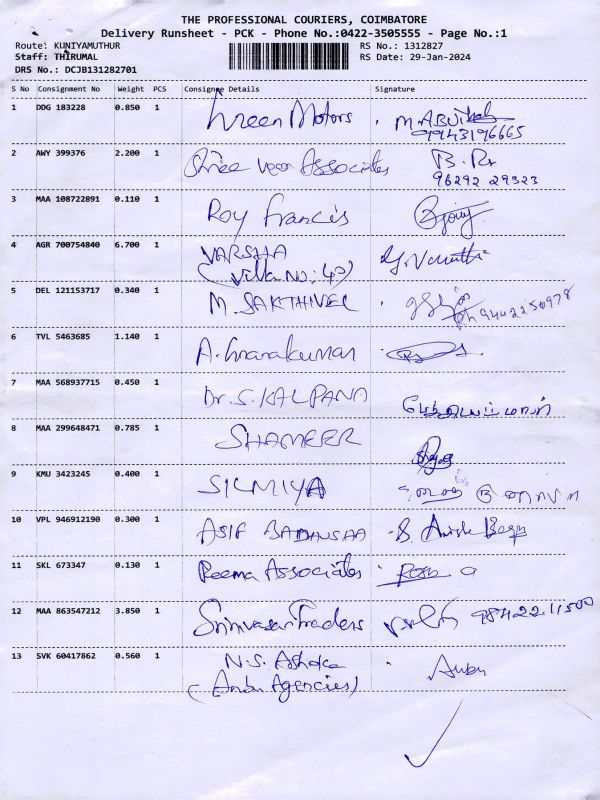 THE PROFESSIONAL COURIERS, COIMBATORE
Delivery Runsheet - PCK - Phone No.:0422-3505555 - Page No.:1
Route: KUNIYAMUTHUR RS No.: 1312827
Staff: THIRUMAL RS Date: 29-Jan-2024
DRS No.: DCJB131282701
S No Consignment No Weight PCS Consignee Details Signature
1 DDG 183228 0.850 1 Green Motors
9943196665
2 AWY 399376 2.200 1 Shree Veer Associates B.
96292 29323
3 MAA 108722891 0.110 1 Roy Francis
4 AGR 700754840 6.700 1 VARSHA
(Villa NO: 49)
5 DEL 121153717 0.340 1 M. SAKTHIVEL
Ph 9442250978
6 TVL 5463685 1.140 1 A.
7 MAA 568937715 0.450 1 Dr. S. KALPANA
8 MAA 299648471 0.785 1 SHAMEER
9 KMU 3423245 0.400 1 SILMIYA
10 VPL 946912190 0.300 1 ASIF BADHSHAA
11 SKL 673347 0.130 1 Reema Associates
12 MAA 863547212 3.850 1 Srinivasan Traders 98422 11500
13 SVK 60417862 0.560 1 N.S. Ashoka Anbu
(Anbu Agencies)